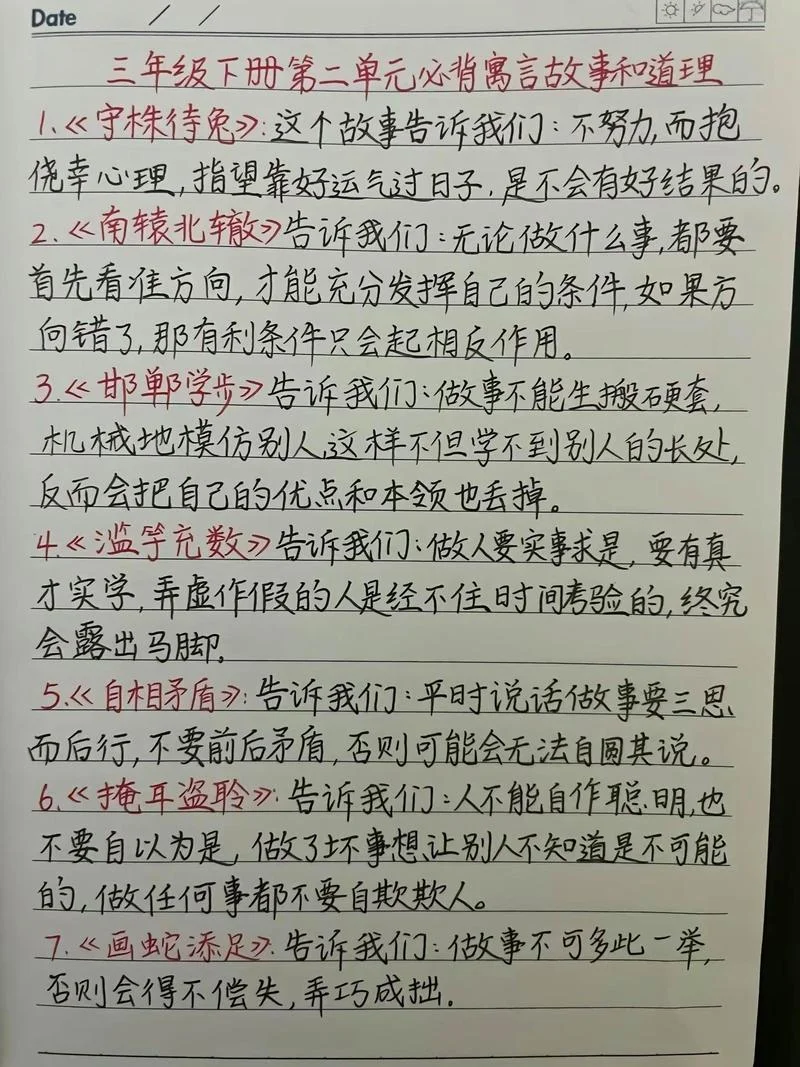 Date / /
三年级下册第二单元必背寓言故事和道理
1.《守株待兔》:这个故事告诉我们:不努力,而抱
侥幸心理,指望靠好运气过日子,是不会有好结果的。
2.《南辕北辙》告诉我们:无论做什么事,都要
首先看准方向,才能充分发挥自己的条件,如果方
向错了,那有利条件只会起相反作用。
3.《邯郸学步》告诉我们:做事不能生搬硬套,
机械地模仿别人,这样不但学不到别人的长处,
反而会把自己的优点和本领也丢掉。
4.《滥竽充数》告诉我们:做人要实事求是,要有真
才实学,弄虚作假的人是经不住时间考验的,终究
会露出马脚.
5.《自相矛盾》:告诉我们:平时说话做事要三思
而后行,不要前后矛盾,否则可能会无法自圆其说。
6.《掩耳盗聆》:告诉我们:人不能自作聪明,也
不要自以为是,做了坏事想让别人不知道是不可能
的,做任何事都不要自欺欺人。
7.《画蛇添足》:告诉我们:做事不可多此一举,
否则会得不偿失,弄巧成拙.